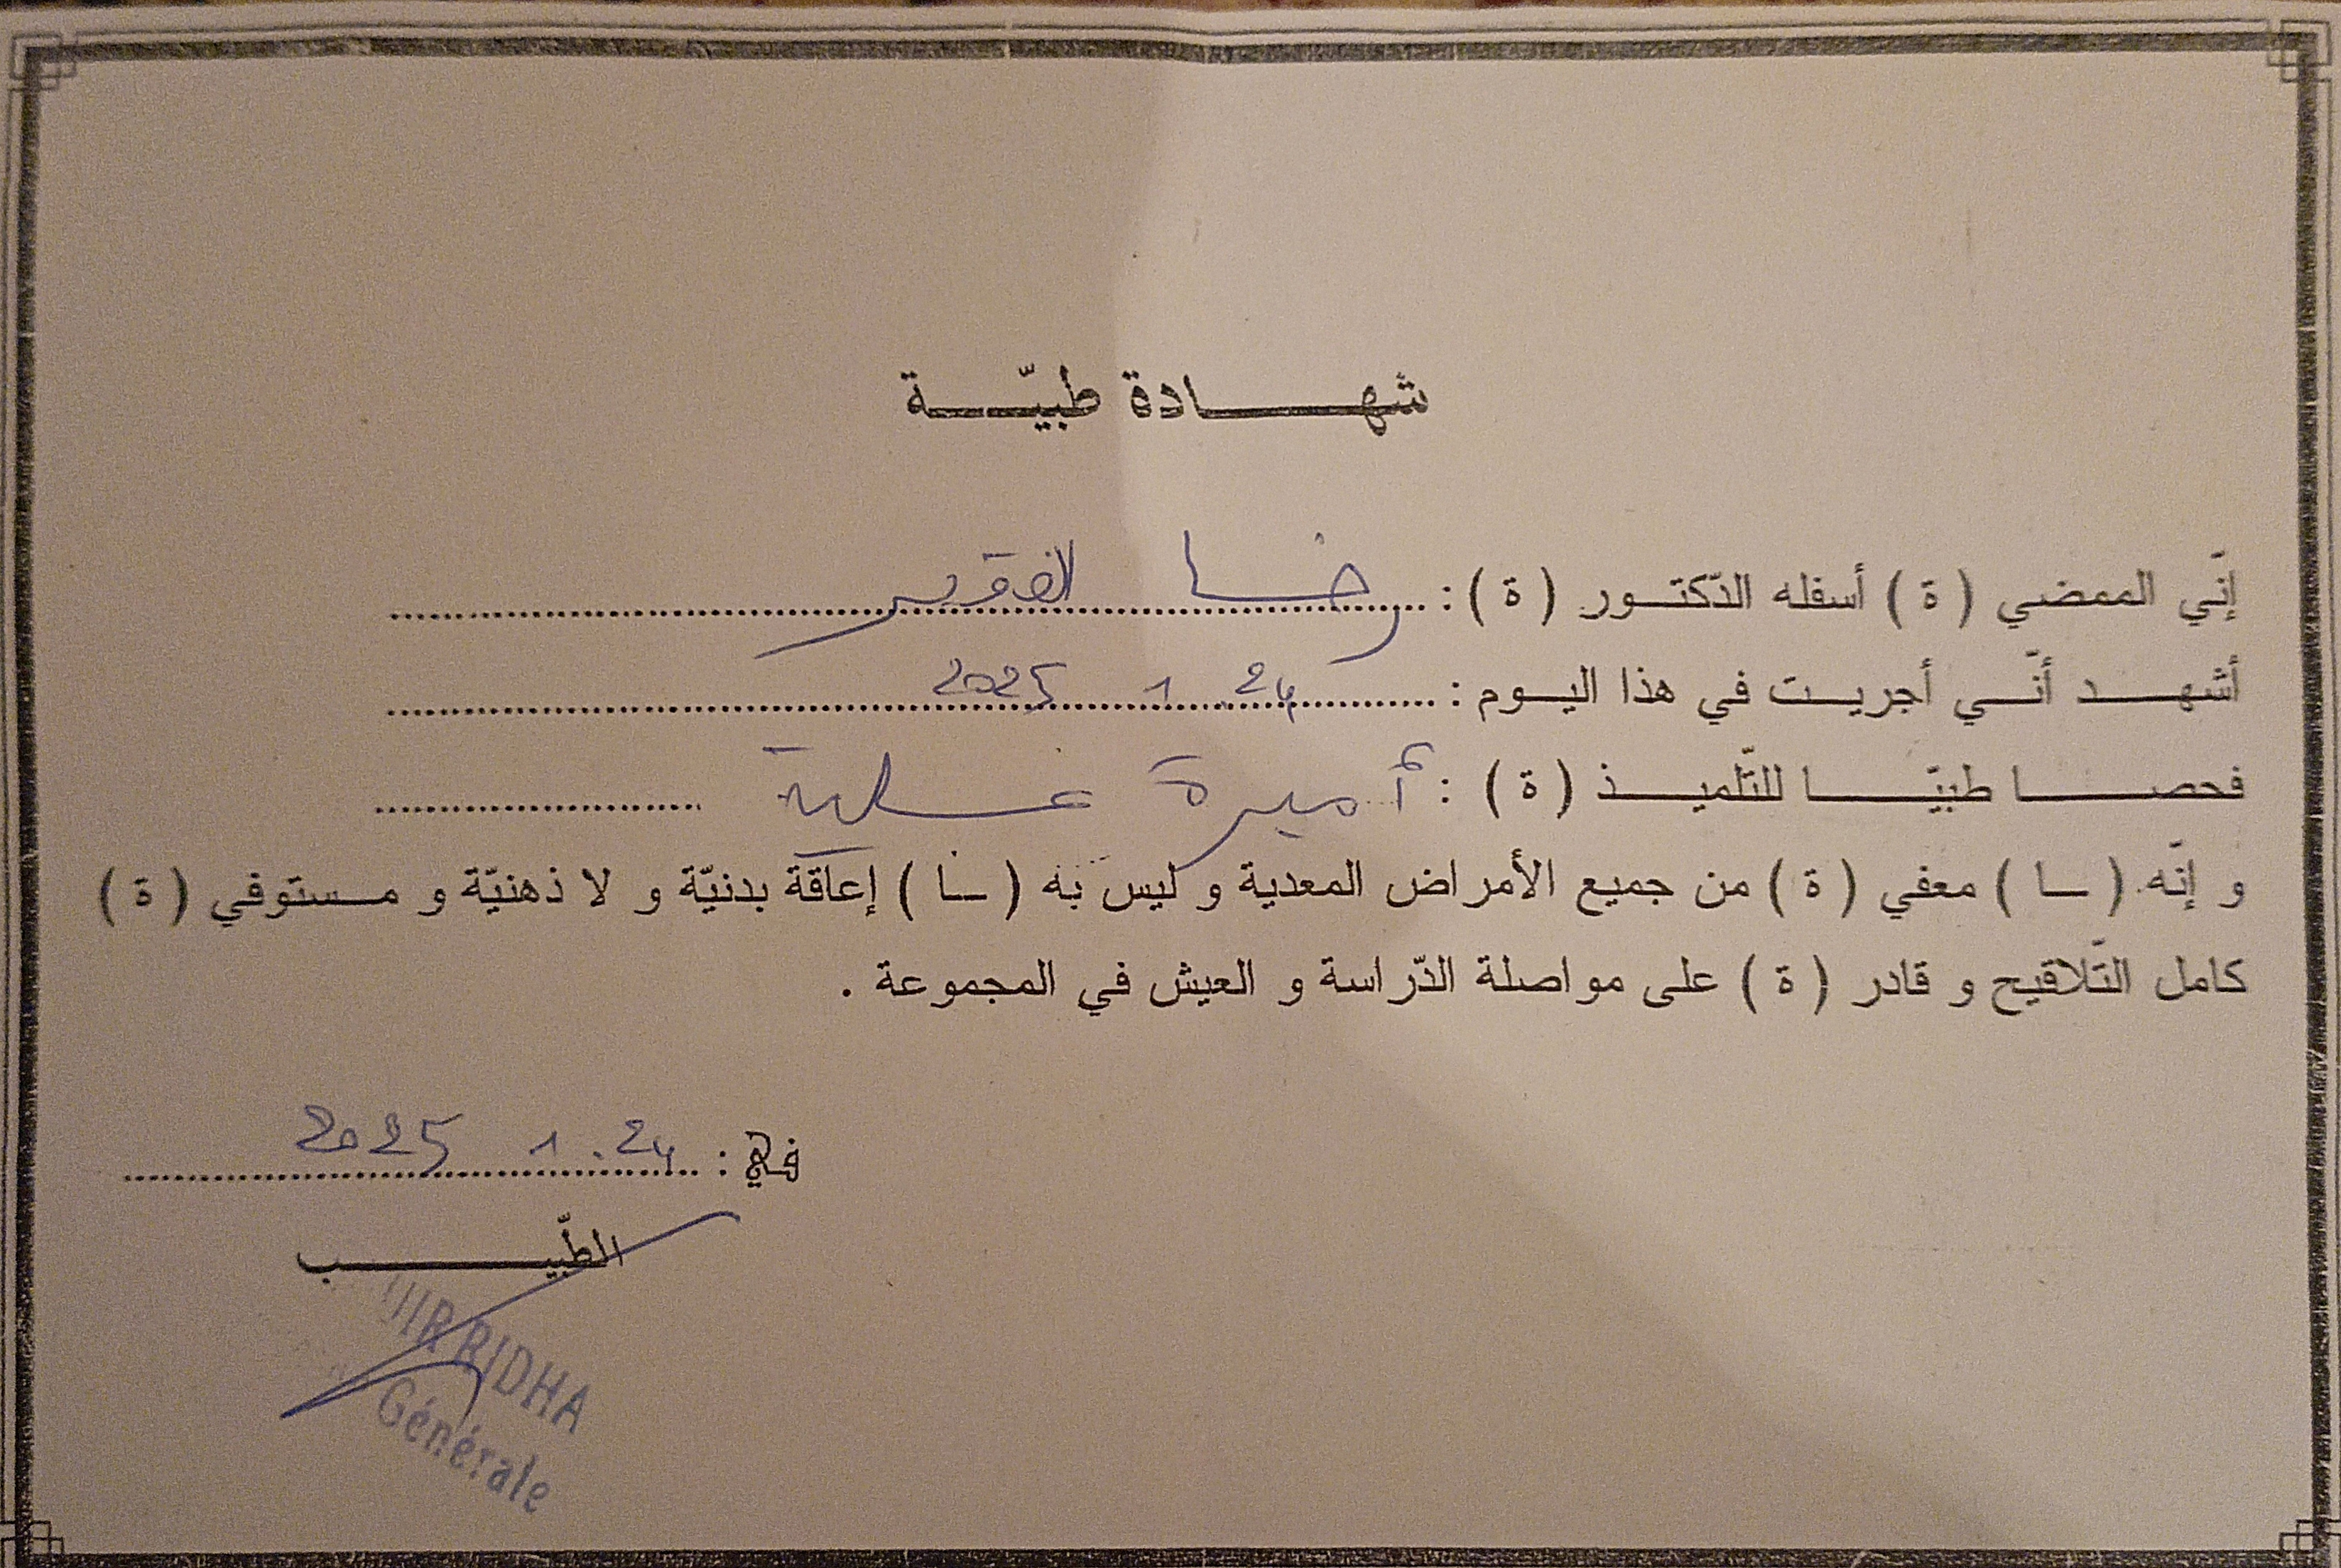 شهادة طبيّة
إنّي الممضي ( ة ) أسفله الدّكتور ( ة ) : رضا الفقير
أشهد أنّي أجريت في هذا اليوم : 24 . 1 2025
فحصا طبيّا للتّلميذ ( ة ) : أميرة
و إنّه ( ـا ) معفي ( ة ) من جميع الأمراض المعدية و ليس به ( ـا ) إعاقة بدنيّة و لا ذهنيّة و مستوفي ( ة )
كامل التّلاقيح و قادر ( ة ) على مواصلة الدّراسة و العيش في المجموعة .
في : 24 . 1 2025
الطّبيب
RIDHA
Générale